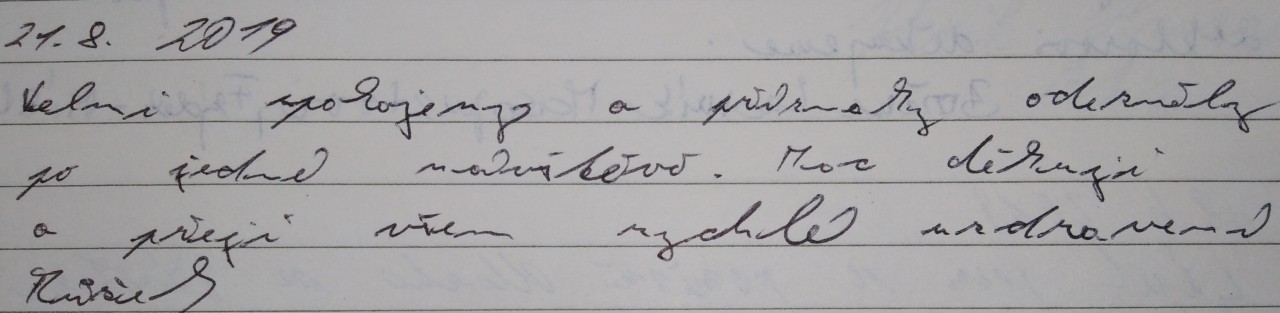 21. 8. 2019
Velmi spokojený a příznaky odezněly
po jedné návštěvě. Moc děkuji
a přeji všem rychlé uzdravení